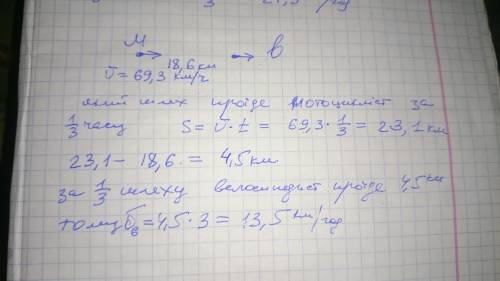 3 21,5 /год
М В
18,6 км
V = 69,3 км/г
який шлях проїде мотоцикліст за
1/3 часу S = V · t = 69,3 · 1/3 = 23,1 км
23,1 – 18,6 = 4,5 км
за 1/3 шляху велосипедист проїде 4,5 км
тому Vв = 4,5 · 3 = 13,5 км/год